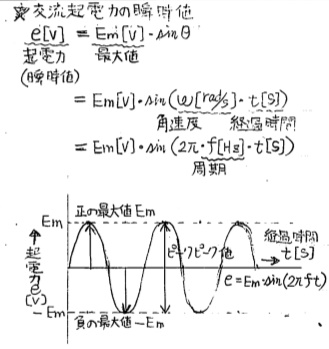 交流起電力の瞬時値
e[V] = Em[V]・sinθ
起電力 最大値
(瞬時値)
= Em[V]・sin(ω[rad/s]・t[S])
角速度 経過時間
= Em[V]・sin(2π・f[Hz]・t[S])
周期
正の最大値 Em
Em
ピークピーク値
経過時間
t[S]
↑起電力e[V]
e=Em・sin(2πft)
-Em
負の最大値 -Em